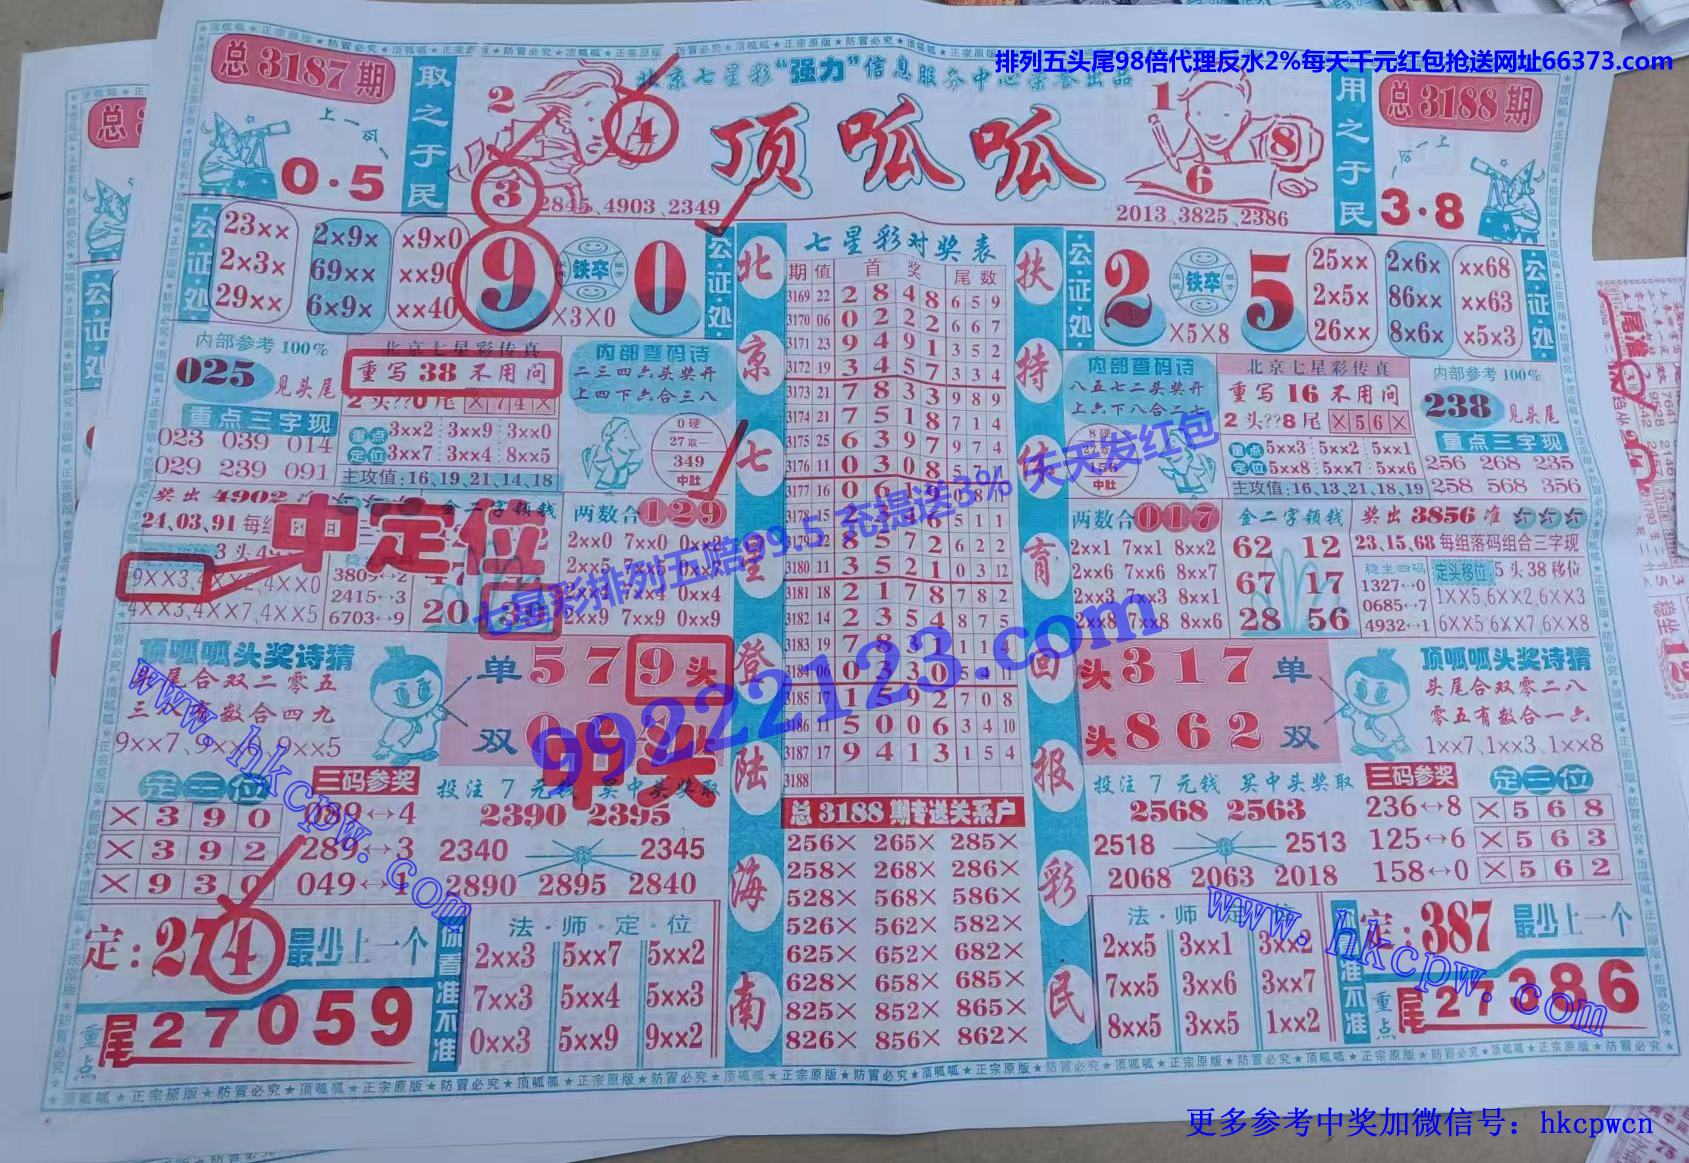 排列五头尾98倍代理反水2%每天千元红包抢送网址66373.com
北京七星彩“强力”信息服务中心荣誉出品
顶呱呱
总3187期
上一
0·5
取之于民
2
4
3
2845、4903、2349
1
8
6
2013,3825,2386
用之于民
总3188期
3·8
公证处
23×× 2×9× ×9×0
2×3× 69×× ××90
29×× 6×9× ××40
9 铁卒 0
×3×0
公证处
内部参考100%
025 见头尾
重点三字现
023 039 014
029 239 091
北京七星彩传真
重写38不用问
2头??0尾 ×74×
重点定位
3××2 3××9 3××0
3××7 3××4 8××5
主攻值:16,19,21,14,18
内部查码诗
二三四六头奖开
上四下六合三八
0硬
27取一
349
中肚
奖出4902准
24,03,91每组
中定位
金二字领钱
20 39
两数合129
2××0 7××0 0××2
2××9 7××9 0××9
9××3,4
4××3,4××7,4××5
3809↔2
2415↔3
6703↔9
顶呱呱头奖诗猜
头尾合双二零五
9××7,9××6,9××5
单579头
双
中头
定三位
×390
×392
×930
三码参奖
089↔4
289↔3
049↔1
投注7元钱 买中头奖取
2390 2395
2340 2345
2890 2895 2840
定:274 最少上一个
重点 尾27059
你看准不准
法·师·定·位
2××3 5××7 5××2
7××3 5××4 5××3
0××3 5××9 9××2
北京七星登陆海南
七星彩对奖表
期 值 首奖 尾数
3169 22 2848 659
3170 06 0222 667
3171 23 9491 352
3172 19 3457 334
3173 21 7833 989
3174 21 7518 714
3175 25 6397 974
3176 11 0308
3177 16
3178 15
3179 22 8572 622
3180 11 3521 0 3 12
3181 18 2178 782
3182 14 2354 875
3183 19
3184 06 0330
3185 17 1592 708
3186 11 5006 3 4 10
3187 17 9413 154
3188
总3188期专送关系户
256× 265× 285×
258× 268× 286×
528× 568× 586×
526× 562× 582×
625× 652× 682×
628× 658× 685×
825× 852× 865×
826× 856× 862×
扶持体育回报彩民
公证处
2 铁卒 5
×5×8
25×× 2×6× ××68
2×5× 86×× ××63
26×× 8×6× ×5×3
公证处
内部查码诗
八五七二头奖开
上六下八合二七
8硬
156
中肚
北京七星彩传真
重写16不用问
2头??8尾 ×56×
重点定位
5××3 5××2 5××1
5××8 5××7 5××6
主攻值:16,13,21,18,19
内部参考100%
238 见头尾
重点三字现
256 268 235
258 568 356
两数合017
2××1 7××1 8××2
2××6 7××6 8××7
2××3 7××3 8××1
2××8 7××8 8××6
金二字领钱
62 12
67 17
28 56
奖出3856准
23,15,68每组落码组合三字现
稳主四码
1327↔0
0685↔7
4932↔1
定头移位:5头38移位
1××5,6××2,6××3
6××5,6××7,6××8
头317单
头862双
顶呱呱头奖诗猜
头尾合双零二八
零五有数合一六
1××7,1××3,1××8
投注7元钱 买中头奖取
2568 2563
2518 2513
2068 2063 2018
三码参奖
236↔8
125↔6
158↔0
定三位
×568
×563
×562
法·师·定·位
2××5 3××1 3××2
7××5 3××6 3××7
8××5 3××5 1××2
定:387 最少上一个
重点 尾27386
七星彩排列五赔99.5 充提送3% 天天发红包
99222123.com
www.hkcpw.com
www.hkcpw.com
更多参考中奖加微信号：hkcpwcn